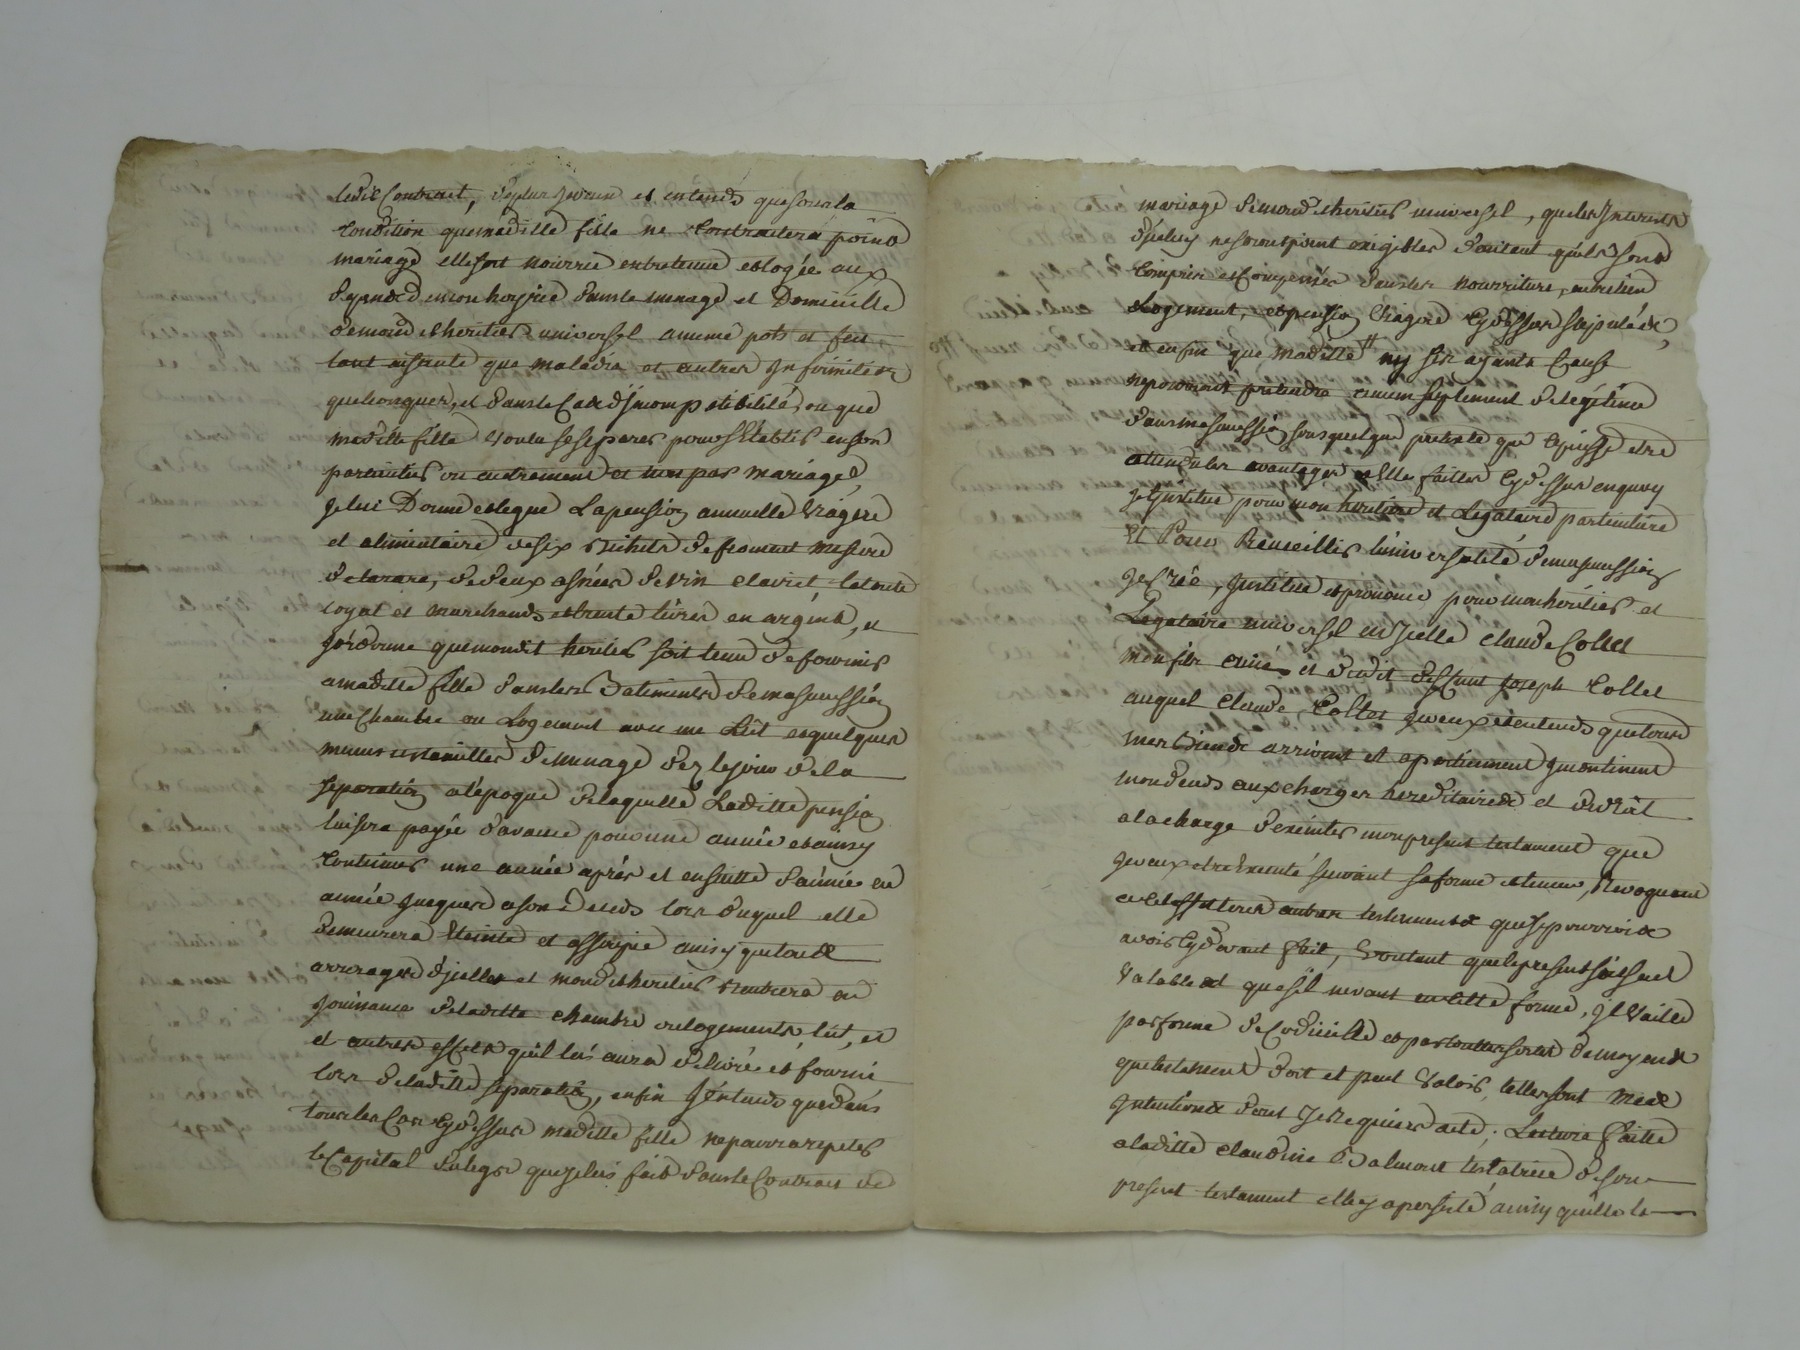 ledit Contract, deplus je veux et entends que sous la
condition que madille fille ne Contractera point
mariage elle soit nourrie entretenue et logée aux
depends de mon hoyrie dans le menage et Domicille
de mondit heritier universel a meme pots et feu
tant en santé que maladie et autres Infirmités
quelconques, et dans le Cas d'jncompatibilité, ou que
maditte fille voulu se separer pour s'Etablir en son
particulier ou autrement et non par mariage,
je lui Donne et legue La pension annuelle Viagere
et alimentaire de six bichets de froment mesure
de larare, de deux asnées de vin clairet le toute
loyal et marchand et trente livres en argent, et
j'ordonne que mondit heritier soit tenu de fournir
a maditte fille dans les Batiments de ma succession
une Chambre ou Logement avec un Lit et quelques
menus ustensilles de menage dez le jour de la
separation a lépoque de laquelle Laditte pension
lui sera payée d'avance pour une année et ainsy
continuer une année aprés et ensuitte d'année en
année jusques a son decès lors duquel elle
demeurera Eteinte et assoupie ainsy que tous
arrerages d'jcelles et mondit heritier rentrera en
jouissance de laditte chambre ou logements, lit, et
et autres effets qu'il lui aura delivré et fourni
lors de laditte separation, enfin j'entends que dans
tous les Cas Cy dessus maditte fille ne pourra repeter
le Capital du legs que je lui fait dans le Contract de
mariage de mondit heritier universel, que les Interests
d'jceluy ne seront point exigibles d'autant qu'ils sont
Compris et Compensés dans les nourriture, entretien
Logement, et pension Viagere Cy dessus stipulée,
et enfin que maditte # ny ses ayants Cause
ne pourront pretendre aucun suplement de légitime
dans ma succession sous quelque pretexte que ce puisse etre
attendu les avantages a Elle faittes Cy dessus en quoy
je l'jnstitue pour mon heritiere et Legataire particuliere
Et Pour Recueillir l'universalité de ma succession
je Crée, jnstitue et prononce pour mon heritier et
Legataire universel en jcelle Claude Collet
mon fils ainé et dudit deffunt Joseph Collet
auquel Claude Collet je veux et entends que tous
mes Biens arrivent et apartiennent jncontinent
mon decès aux charges hereditaires et de droit
a la charge d'executer mon present testament que
je veux etre Executé suivant sa forme et teneur, Revoquant
a cet effet tous autres testaments que je pourrois
avoir Cy devant fait, Voulant que le present soit seul
Valable et que s'il ne vaut en cette forme, jl Vaille
par forme de Codicille et par toutes sortes de moyens
que testament doit et peut Valoir, telles sont Mes
Intentions dont je Requiers acte; Lecture faitte
a laditte claudine Balmont testatrice de son
present testament elle y a persisté ainsy qu'elle le